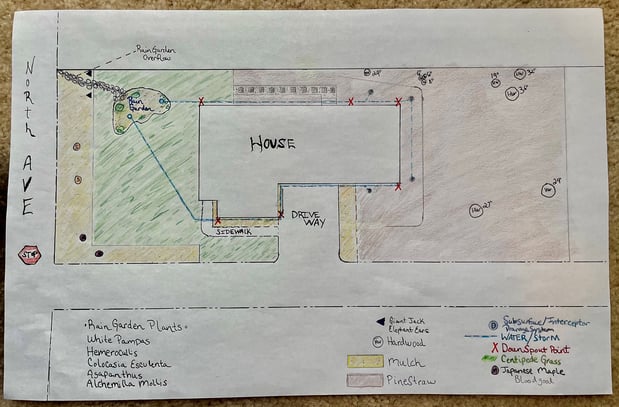 Rain Garden
Overflow
North AVE
STOP
Rain
Garden
HOUSE
DRIVE
WAY
SIDEWALK
•Rain Garden Plants•
White Pampas
Hemerocallis
Colocasia Esculenta
Agapanthus
Alchemilla Mollis
Giant Jack
Elephant Ears
Hw Hardwood
Mulch
PineStraw
D Subsurface/Interceptor
Drainage System
WATER/Storm
X DownSpout Point
Centipede Grass
Japanese Maple
Bloodgood